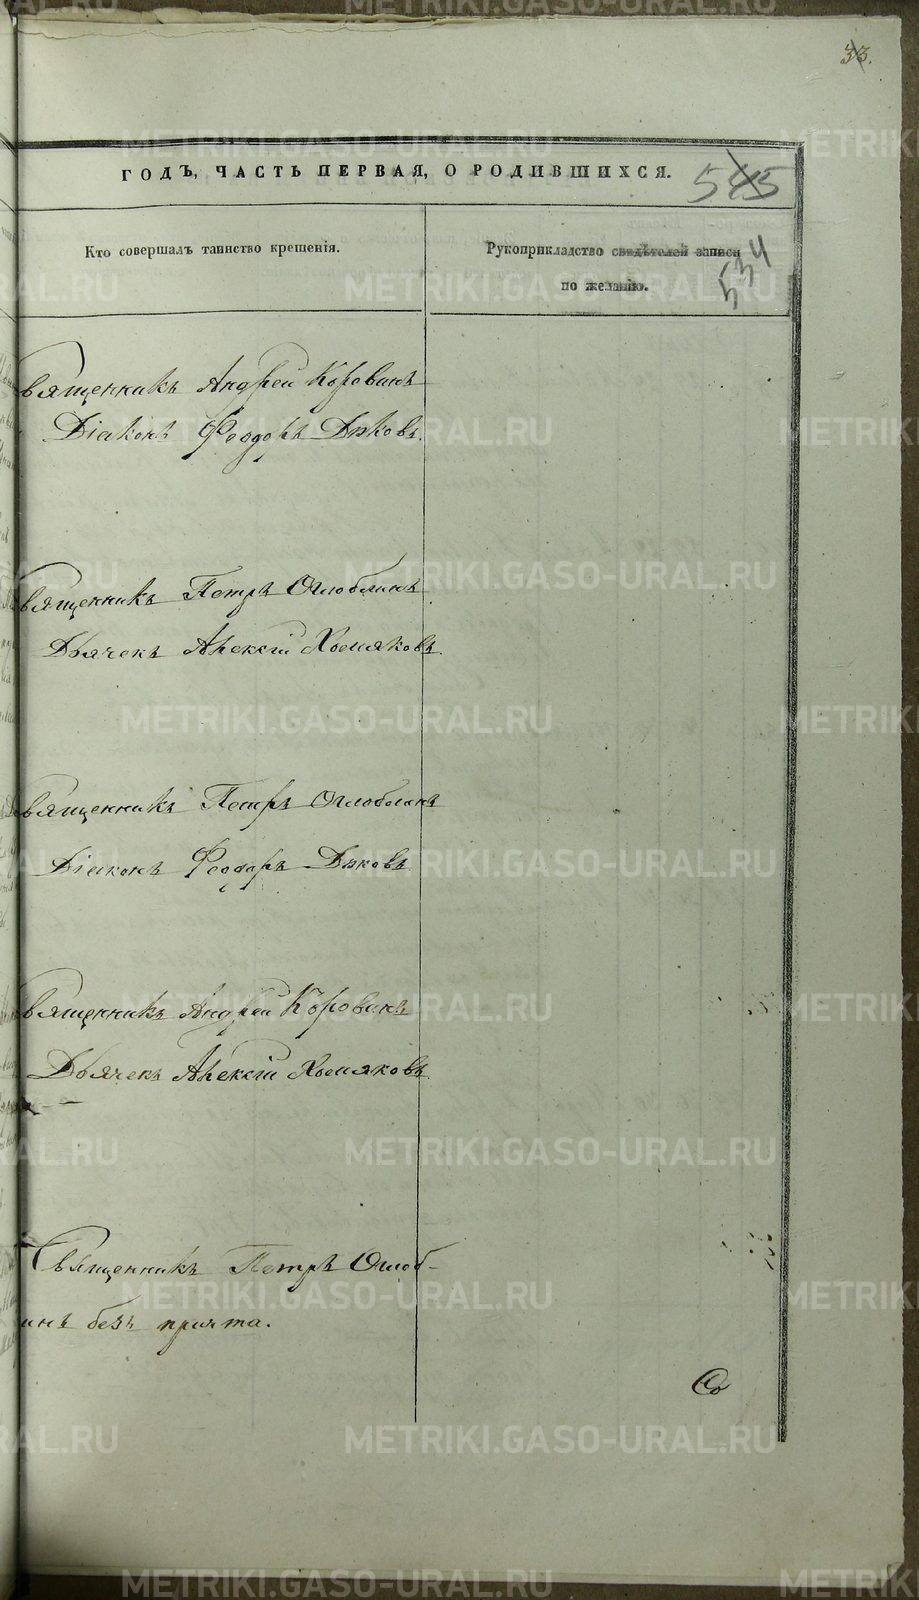 33.
ГОДЪ, ЧАСТЬ ПЕРВАЯ, О РОДИВШИХСЯ.
545
Кто совершалъ таинство крещенія.
Рукоприкладство свидѣтелей записи
по желанію.
534
Священникъ Андрей Коровинъ
Діаконъ Феодоръ Дьковъ.
Священникъ Петръ Оглоблинъ
Дьячекъ Алексій Хомяковъ.
Священникъ Петръ Оглоблинъ
Діаконъ Феодоръ Дьковъ
Священникъ Андрей Коровинъ
Дьячекъ Алексій Хомяковъ.
Священникъ Петръ Оглоб-
инъ безъ причта.
Со
METRIKI.GASO-URAL.RU